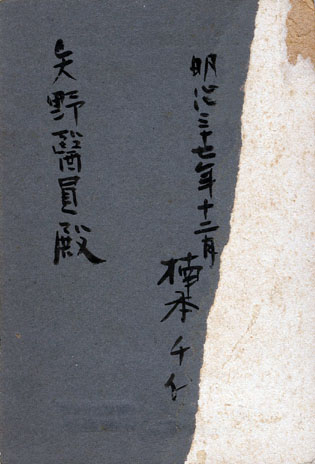 明治三十七年十二月
楠本千代
矢野醫員殿